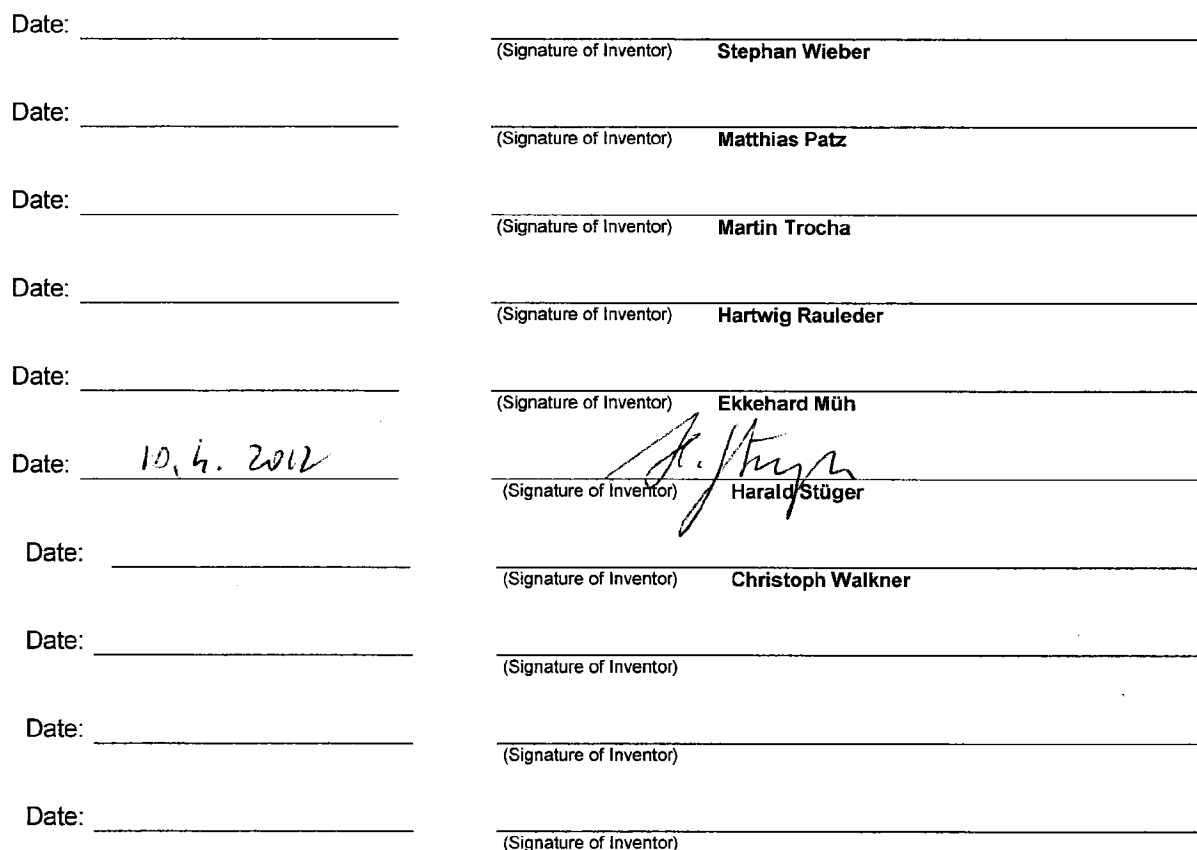 Date:
(Signature of Inventor) Stephan Wieber
Date:
(Signature of Inventor) Matthias Patz
Date:
(Signature of Inventor) Martin Trocha
Date:
(Signature of Inventor) Hartwig Rauleder
Date:
(Signature of Inventor) Ekkehard Müh
Date: 10. 4. 2012 H. Stüger
(Signature of Inventor) Harald Stüger
Date:
(Signature of Inventor) Christoph Walkner
Date:
(Signature of Inventor)
Date:
(Signature of Inventor)
Date:
(Signature of Inventor)